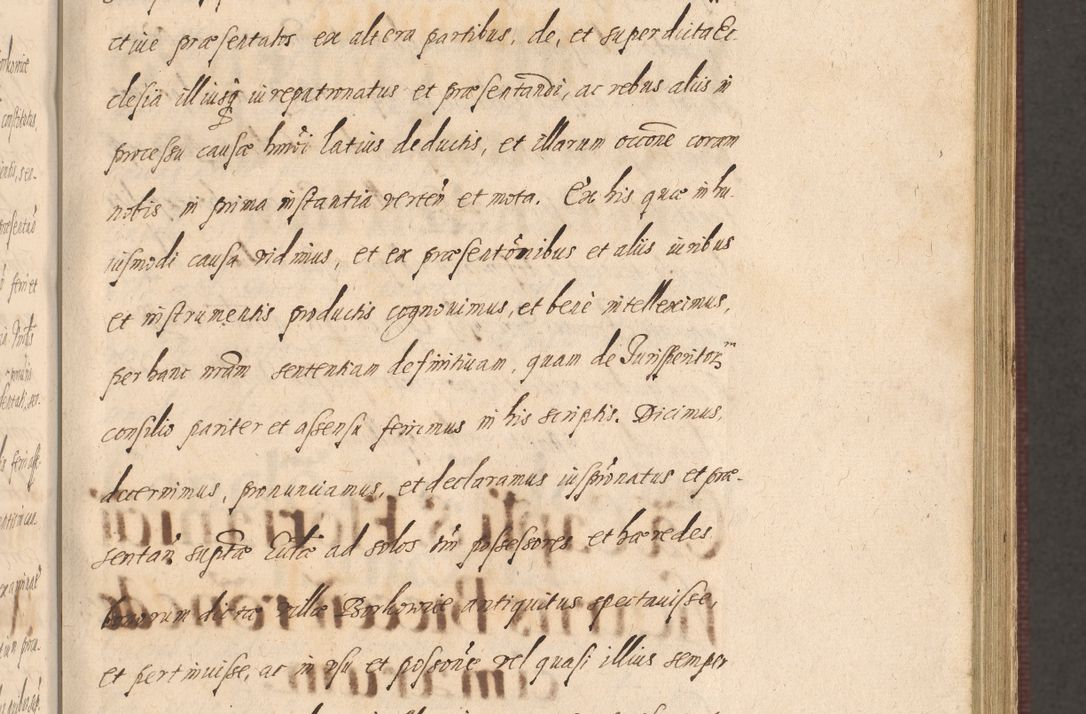 ctiue præsentatos ex altera partibus, de, et super dicta Ec
clesia illiusq iurepatronatus et præsentandi, ac rebus aliis in
processu causæ hmoi latius deductis, et illarum occone coram
nobis in prima instantia verten et mota. Ex his quæ in hu-
iusmodi causa vidimus, et ex præsentonibus et aliis iuribus
et instrumentis productis cognouimus, et bene intelleximus,
per hanc nram sententiam definitiuam, quam de Jurisperitor
consilio pariter et assensu ferimus in his scriptis. Dicimus,
decernimus, pronunciamus, et declaramus iuspronatus et præ-
sentan suptæ Ecclæ ad solos oim possessores et hæredes
bonorum dictæ villæ Borkowice antiquitus spectauisse,
et pertinuisse, ac in vsu et possone vel quasi illius semper